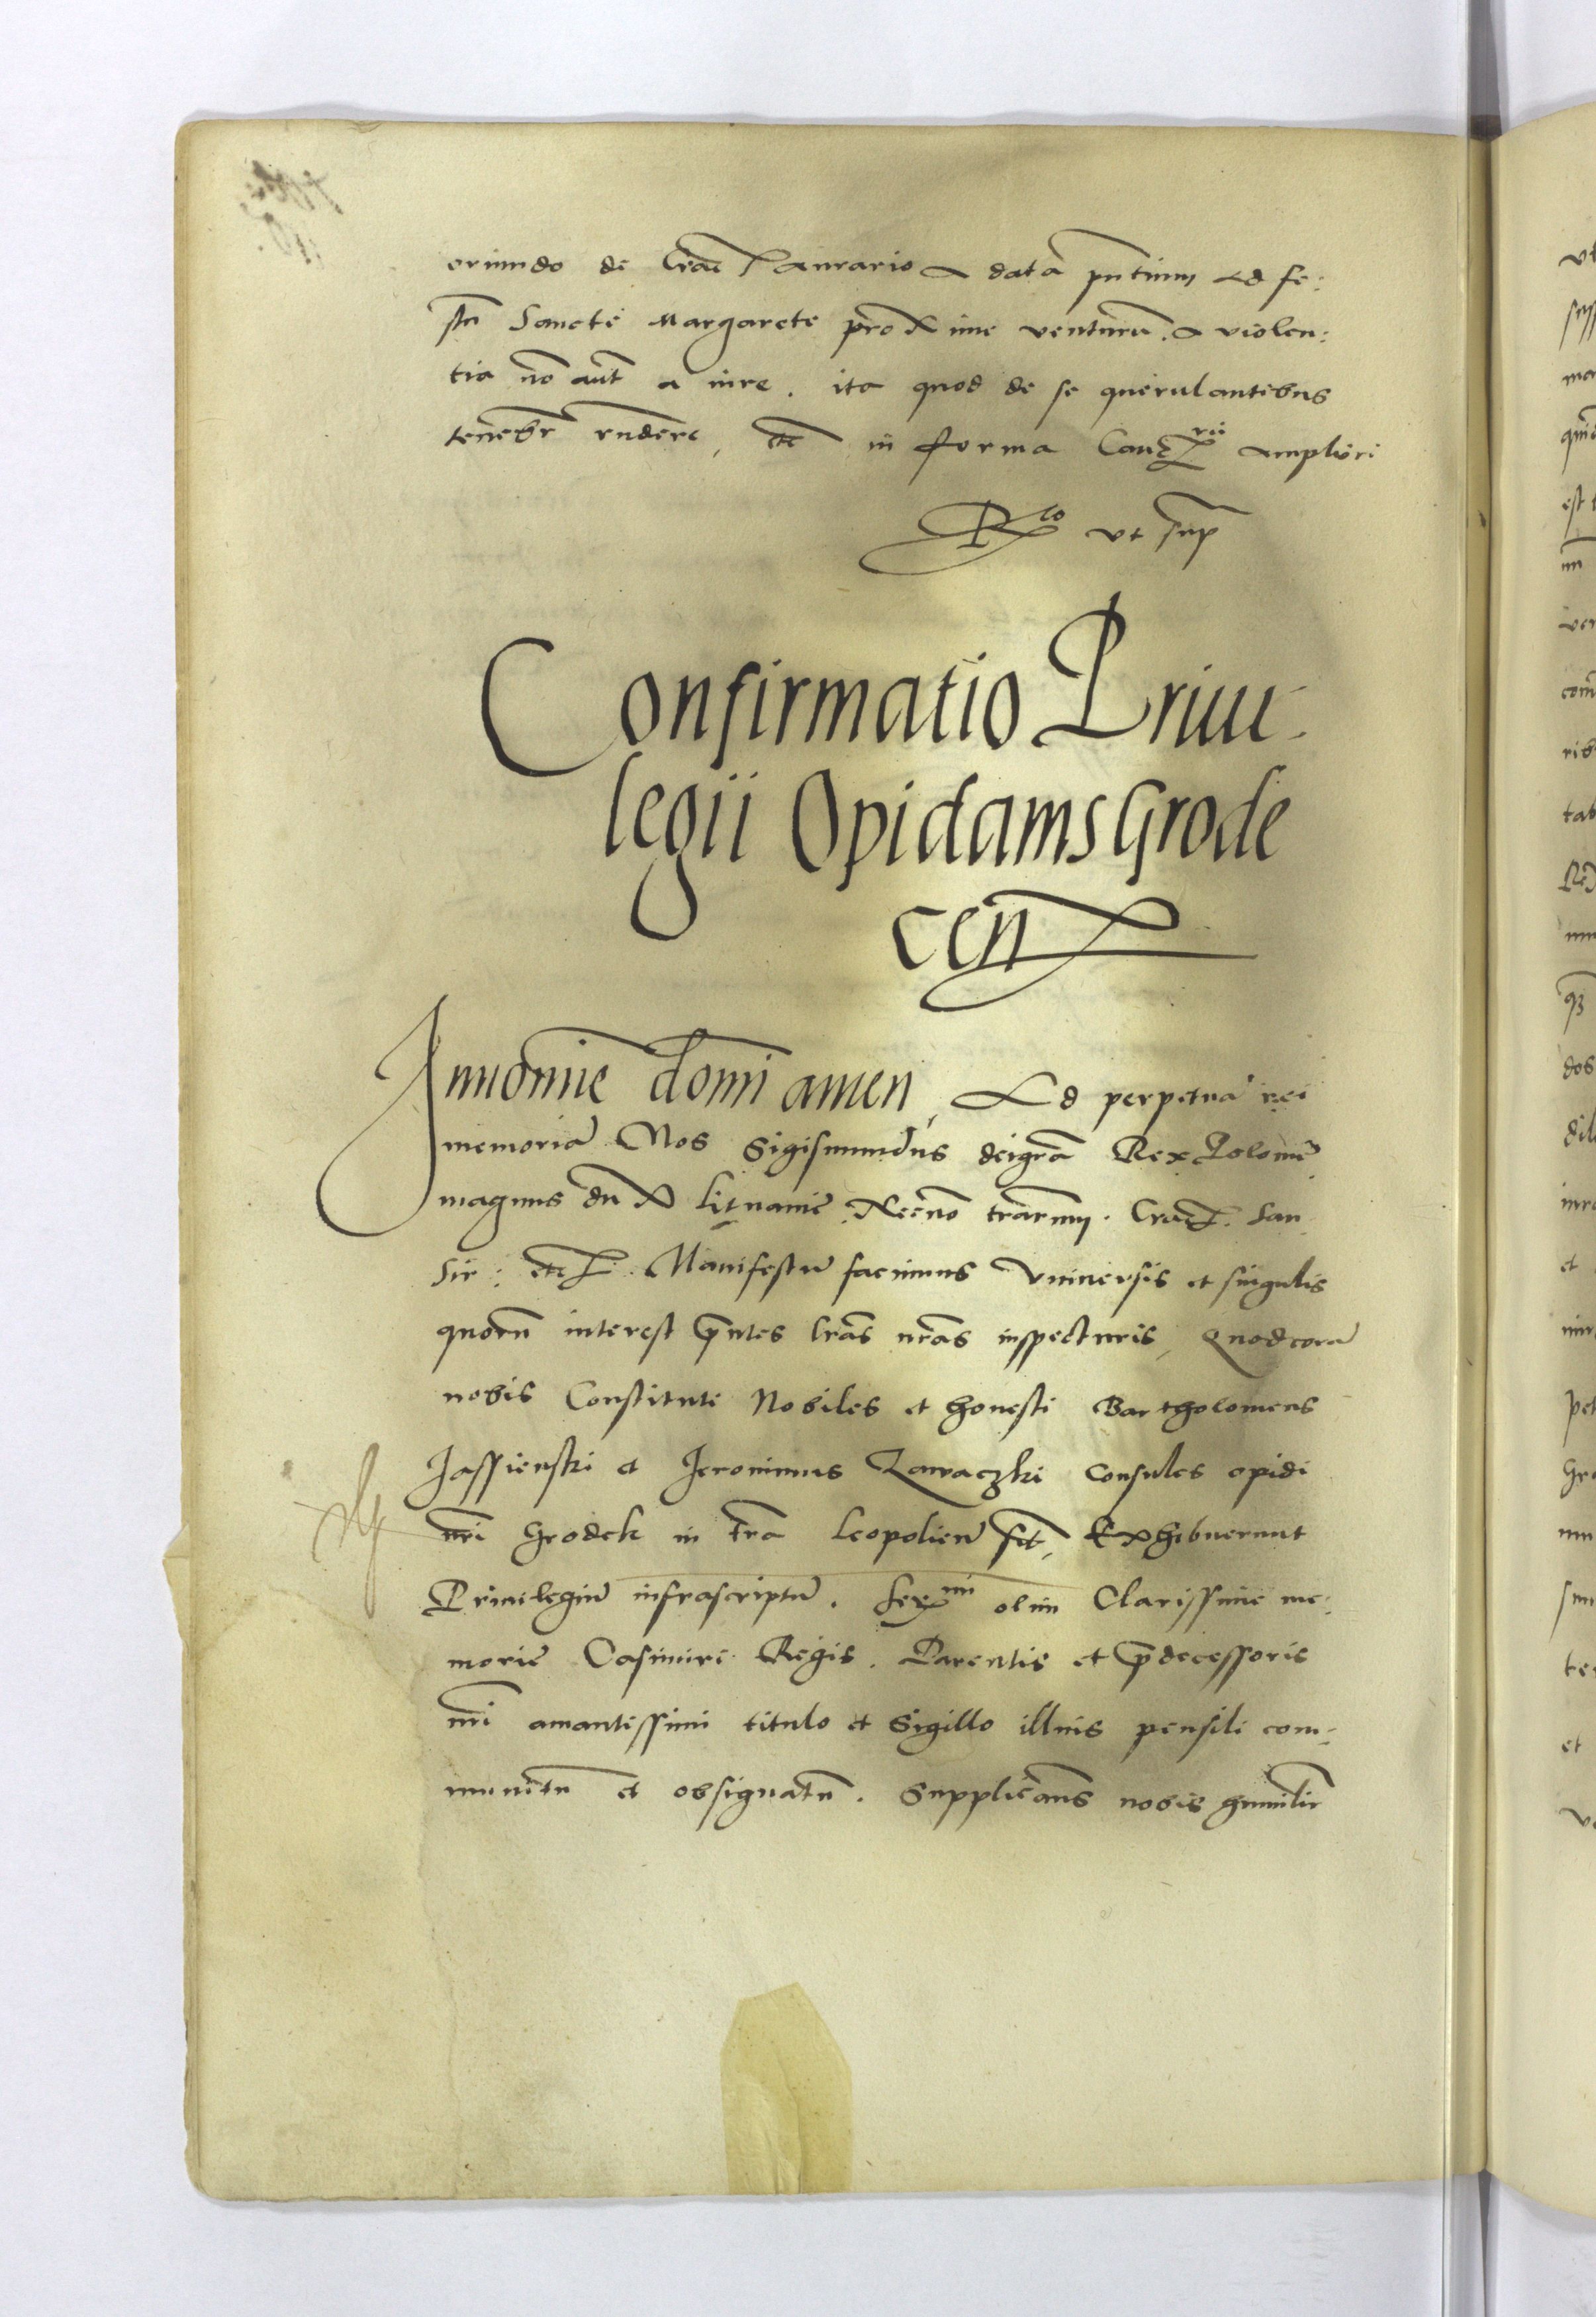 oriundo de Crac aurario a data pntium ad fe:
stu Sancte Margarete proxime venturu. a violen:
tia no aut a iure. ita quod de se querulantibus
tenebr rndere, etc in forma Canc ampliori
Rlo ut sup
Confirmatio Priui-
legii Opidanis Grode
cen
In nomie domi amen, Ad perpetua rei
memoria Nos Sigismundus dei gra Rex Polonie
magnus dux Lituanie Necno trarum. Crac. San
Sir: etc. Manifestu facimus Vniuersis et singulis
quoru interest pntes lras nras inspecturis, Quod cora
nobis Constituti Nobiles et honesti Bartholomeus
Jassienski et Jeronimus Zawaczki Consules opidi
nri Grodek in tra Leopolien, Exhibuerunt
Priuilegiu infrascriptu. Serni olim Clarissime me:
morie Casimiri Regis. Parentis et pdecessoris
nri amantissimi titulo et Sigillo illius pensili com-
munitu et obsignatu. Supplicans nobis humilir